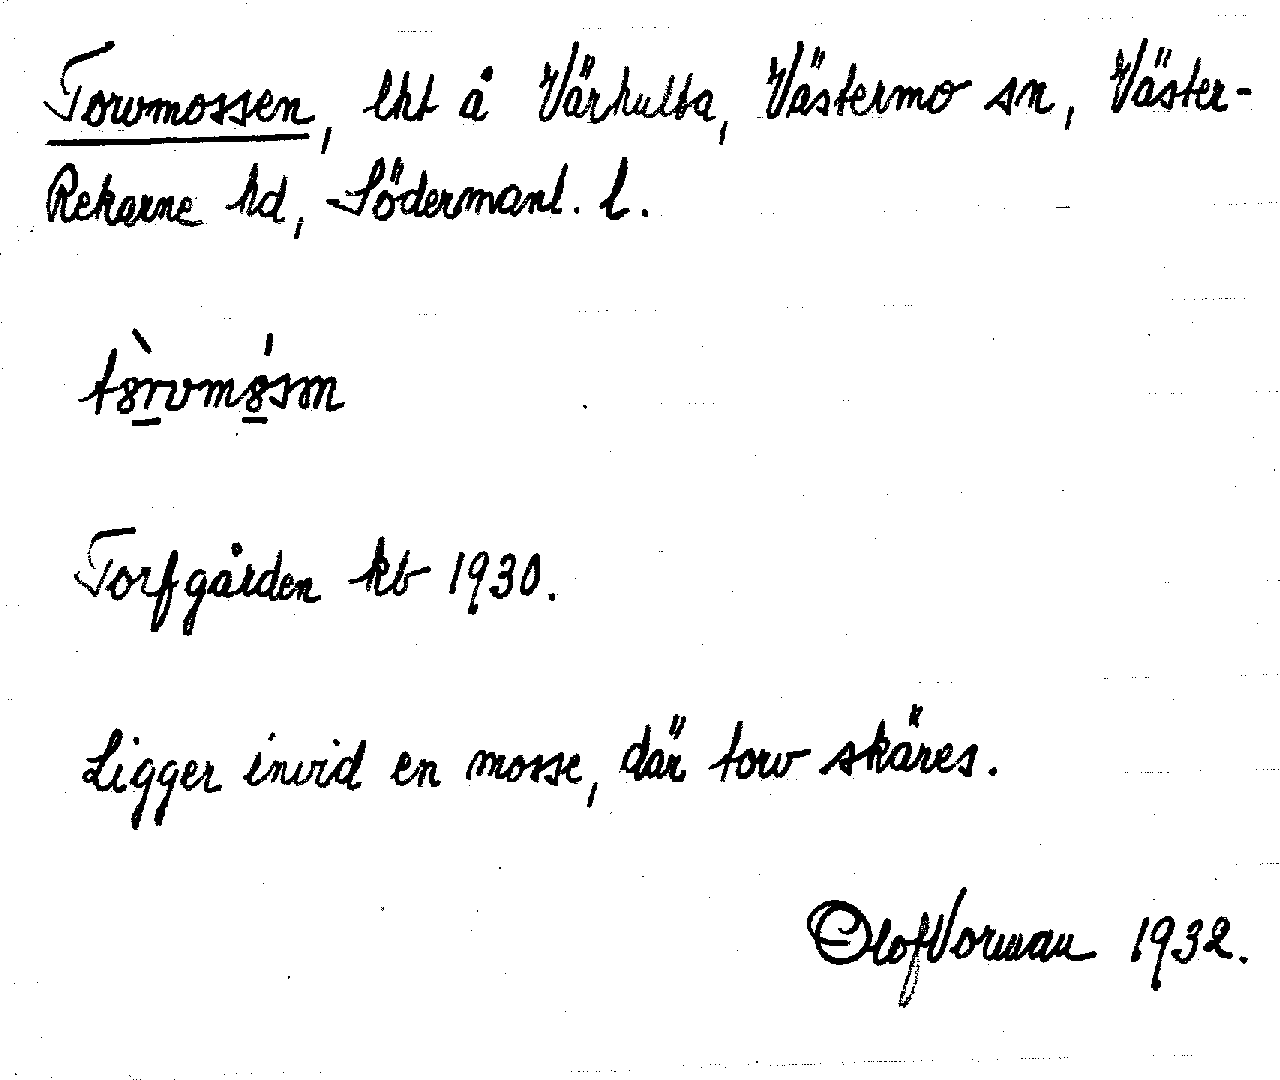 Torvmossen, lht å Värhulta, Västermo sn, Väster-
Rekarne hd, Södermanl. l.
tòrvmósm
Torfgården kb 1930.
Ligger invid en mosse, där torv skäres.
Olof Vorman 1932.